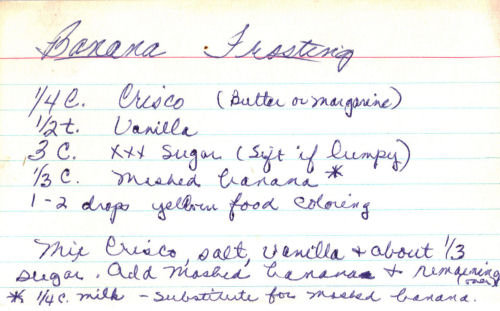 Banana Frosting
1/4 C. Crisco (Butter or margarine)
1/2 t. Vanilla
3 C. xxx Sugar (Sift if lumpy)
1/3 C. Mashed banana *
1-2 drops yellow food coloring
Mix Crisco, salt, Vanilla + about 1/3
sugar. Add Mashed banana + remaining
(over)
* 1/4 c. milk - substitute for mashed banana.